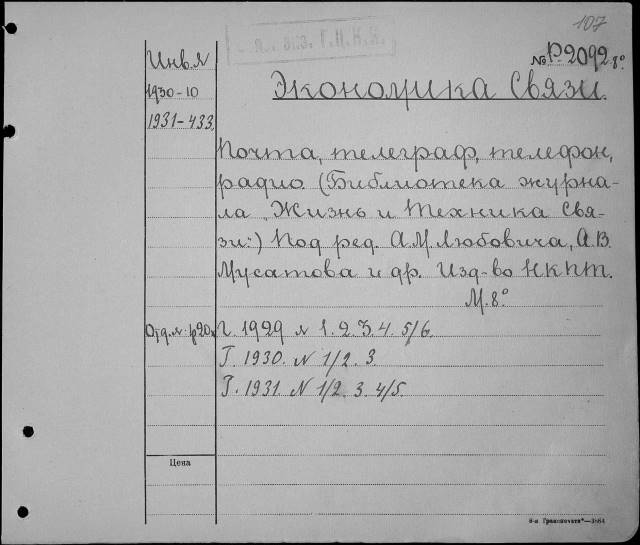 107
№ Р-2092 8°
Инв.№
1930-10
1931-433.
Экономика Связи.
Почта, телеграф, телефон,
радио. (Библиотека журна-
ла „Жизнь и Техника Свя-
зи:) Под ред. А.М.Любовича, А.В.
Мусатова и др. Изд-во НКПТ.
М. 8°
Г. 1929 № 1. 2. 3. 4. 5/6.
Г. 1930. № 1/2. 3.
Г. 1931. № 1/2. 3. 4/5.
Цена